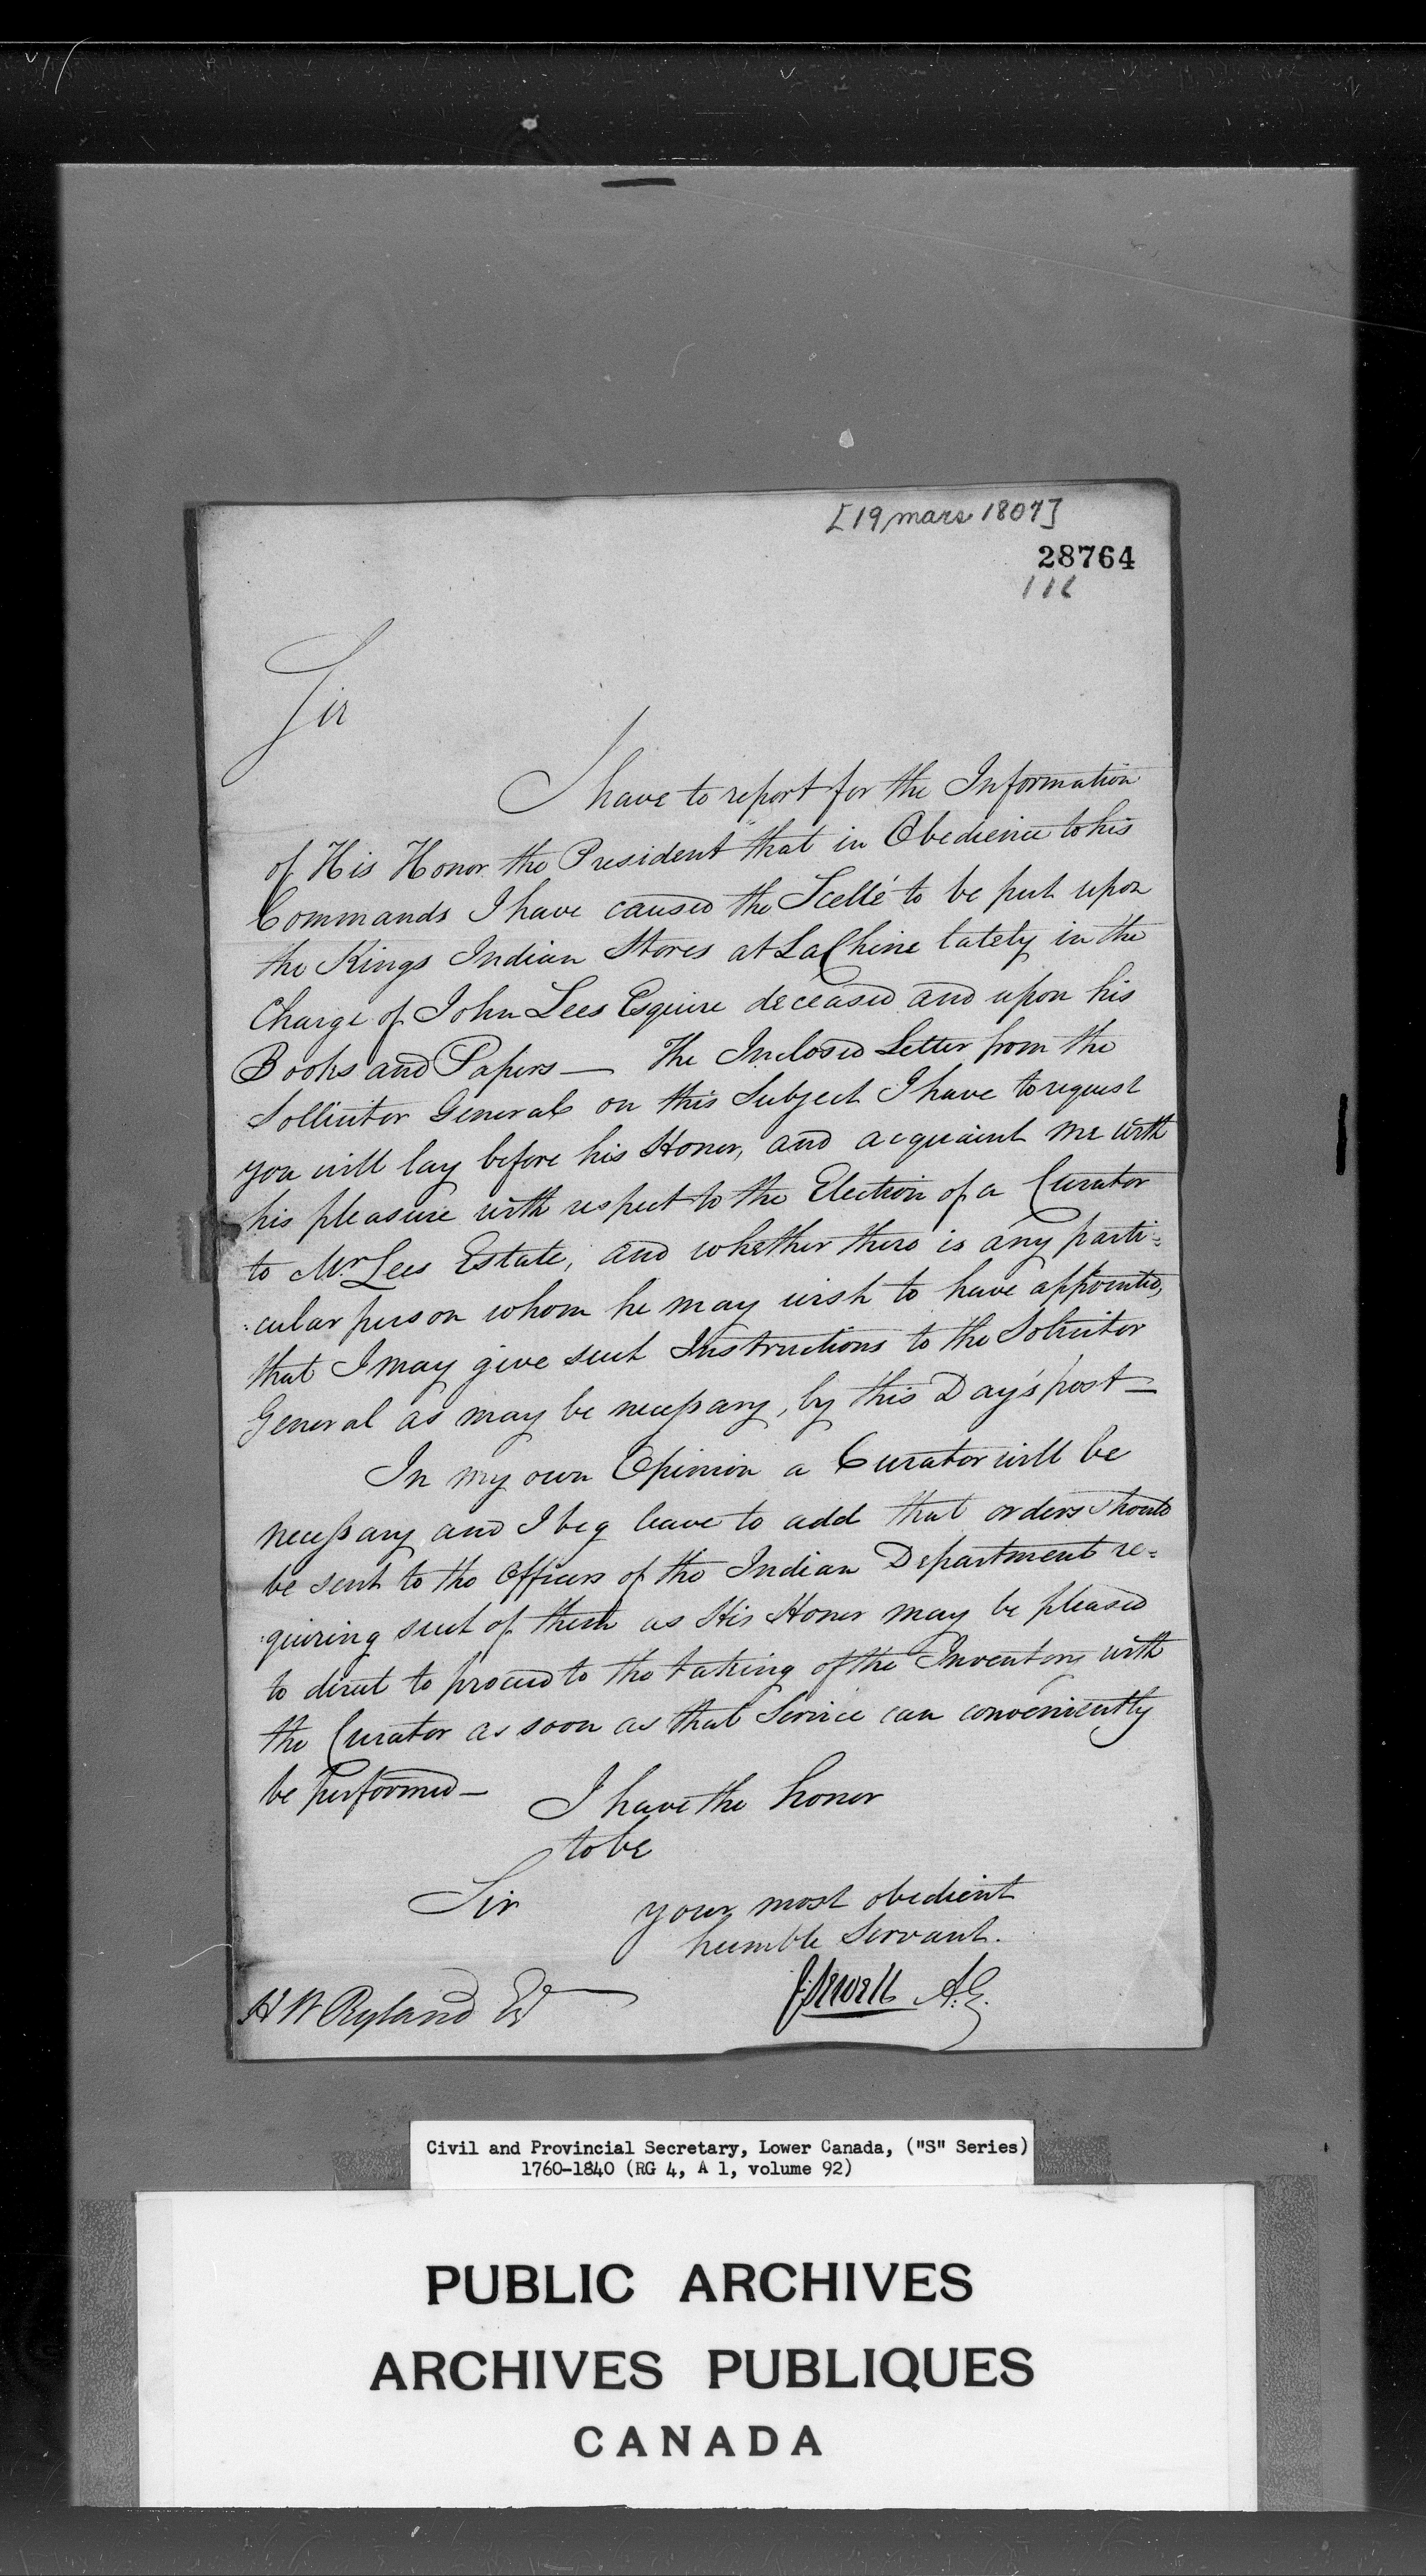 [19 mars 1807]
28764
116
Sir
I have to report for the Information
of His Honor the President that in Obedience to his
Commands I have caused the Scellé to be put upon
the Kings Indian Stores at LaChine lately in the
Charge of John Lees Esquire deceased and upon his
Books and Papers — The Inclosed Letter from the
Sollicitor General on this Subject I have to request
you will lay before his Honor, and acquaint me with
his pleasure with respect to the Election of a Curator
to Mr Lees Estate, and whether there is any parti-
cular person whom he may wish to have appointed,
that I may give such Instructions to the Solicitor
General as may be necessary, by this Day's post —
In my own Opinion a Curator will be
necessary and I beg leave to add that orders should
be sent to the Officers of the Indian Department re-
quiring such of them as His Honor may be pleased
to direct to proceed to the taking of the Inventory with
the Curator as soon as that Service can conveniently
be performed —
I have the honor
to be
Sir your most obedient
humble Servant.
J Sewell A.G.
H W Ryland Esq
Civil and Provincial Secretary, Lower Canada, ("S" Series)
1760-1840 (RG 4, A 1, volume 92)
PUBLIC ARCHIVES
ARCHIVES PUBLIQUES
CANADA